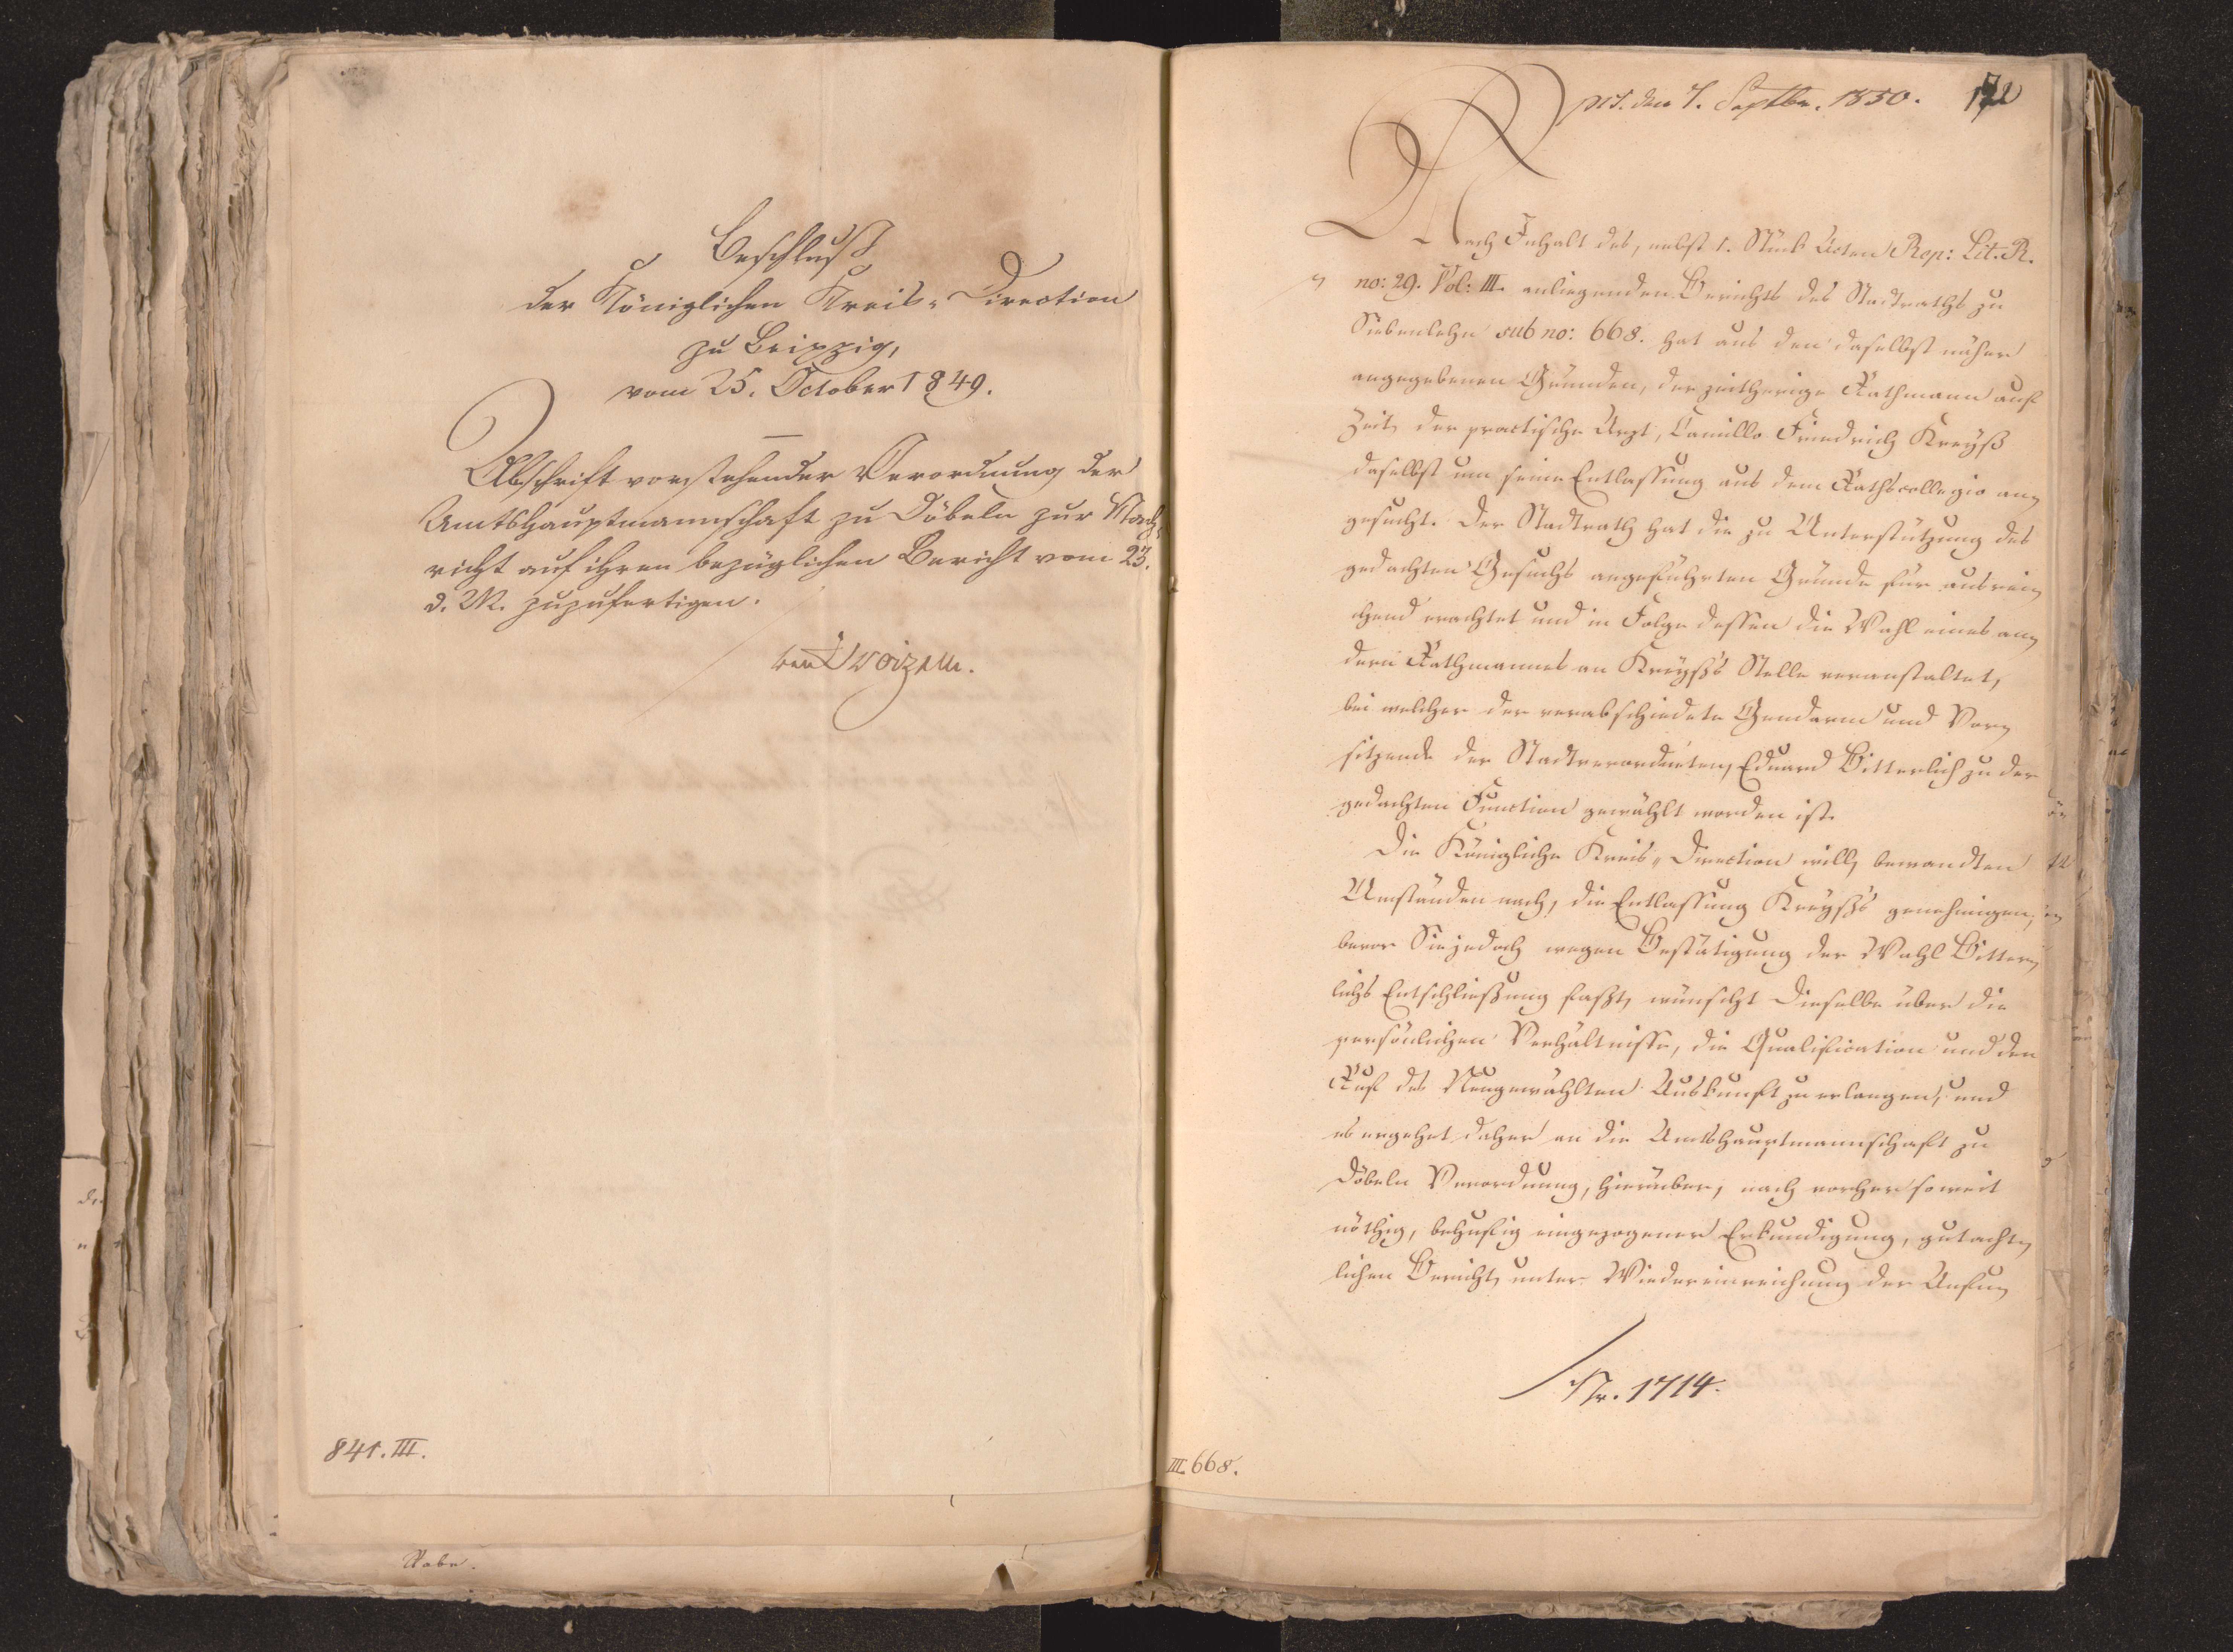 Beschluß
der Königlichen Kreis-Direction
zu Leipzig,
vom 25. October 1849.
Abschrift vorstehender Verordnung der
Amtshauptmannschaft zu Döbeln zur Nach-
richt auf ihren bezüglichen Bericht vom 23.
d. M. zuzufertigen.
von Broizem.
841. III.
Rabe.
pst. den 7. Septbr. 1850.
Nach Inhalt des, nebst 1. Stück Acten Rep: Lit. R.
no: 29. Vol: III. anliegenden Berichts des Stadtraths zu
Siebenlehn sub no: 668. hat aus den daselbst näher
angegebenen Gründen, der zeitherige Rathmann auf
Zeit, der practische Arzt, Camillo Friedrich Kreyß
daselbst um seine Entlassung aus dem Rathscollegio an-
gesucht. Der Stadtrath hat die zu Unterstützung des
gedachten Gesuchs angeführten Gründe für ausrei-
chend erachtet und in Folge dessen die Wahl eines an-
dern Rathmannes an Kreyß's Stelle veranstaltet,
bei welcher der verabschiedete Gendarm und Vor-
sitzende der Stadtverordneten, Eduard Bitterlich zu der
gedachten Function gewählt worden ist.
Die Königliche Kreis-Direction will, bewandten
Umständen nach, die Entlassung Kreyß's genehmigen;
bevor Sie jedoch wegen Bestätigung der Wahl Bitter-
lichs Entschließung faßt, wünscht Dieselbe über die
persönlichen Verhältnisse, die Qualification und den
Ruf des Neugewählten Auskunft zu erlangen, und
es ergehet daher an die Amtshauptmannschaft zu
Döbeln Verordnung, hierüber, nach vorher soweit
nöthig, behufig eingezogener Erkundigung, gutacht-
lichen Bericht, unter Wiedereinreichung der Anfu-
Nr. 1714.
III. 668.